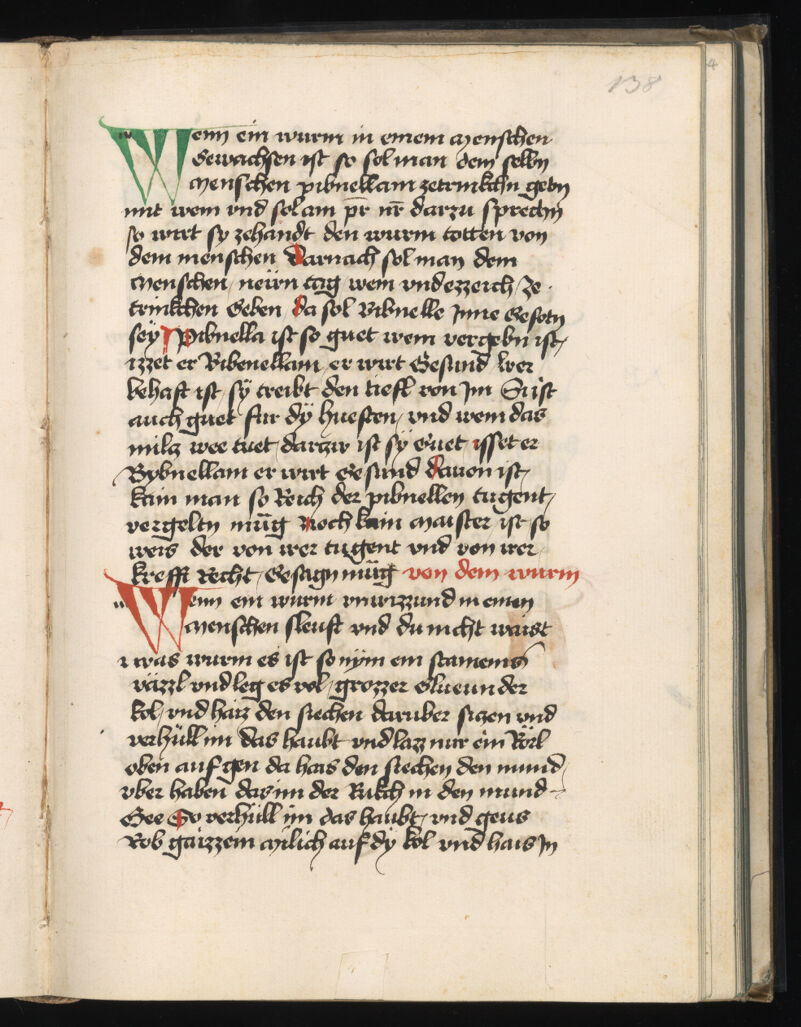 138
4
Wenn ein wurm in einem menschen
Gewachsen ist so sol man dem selbn
menschen pibnellam zetrinkchn gebn
mit wein vnd sol am pr nr darzu sprechn
so wirt sy zehandt den wurm totten von
dem menschen Darnach sol man dem
menschen newn tag wein vnd ezzeich ze
trinkchen Geben da sol Bibnelle Inne Gesotn
sey Pibnella ist so guet wem vergebn ist
izzet er Bibenellam er wirt Gesund wer
behaft ist sÿ treibt den tiefl von Im Si ist
auch guet fur dÿ huesten vnd wem das
milcz wee tuet darczw ist sÿ Guet isset er
Bybnellam er wirt Gesund dauon ist
kain man so Reich der pibnellen tugent
vergeltn müg noch kain maister ist so
weis der von irer tugent vnd von irer
krefft Recht Gesagn müg von dem wurm
Wenn ein wurm vnwizzund in einen
menschen sleuft vnd du nicht waist
was wurm es ist so nÿm ein stameins
väzzl vnd leg es vol grozzer Glueunder
kol vnd haiz den siechen daruber siczen vnd
verhüll im das haubt vnd lazz nur ein Rörl
oben auf gen da hais den siechen den mund
vber haben das im der Rukch in den mund
Gee So verhüll im das haubt vnd geus
Rob gaizzein milich auf dy kol vnd hais In